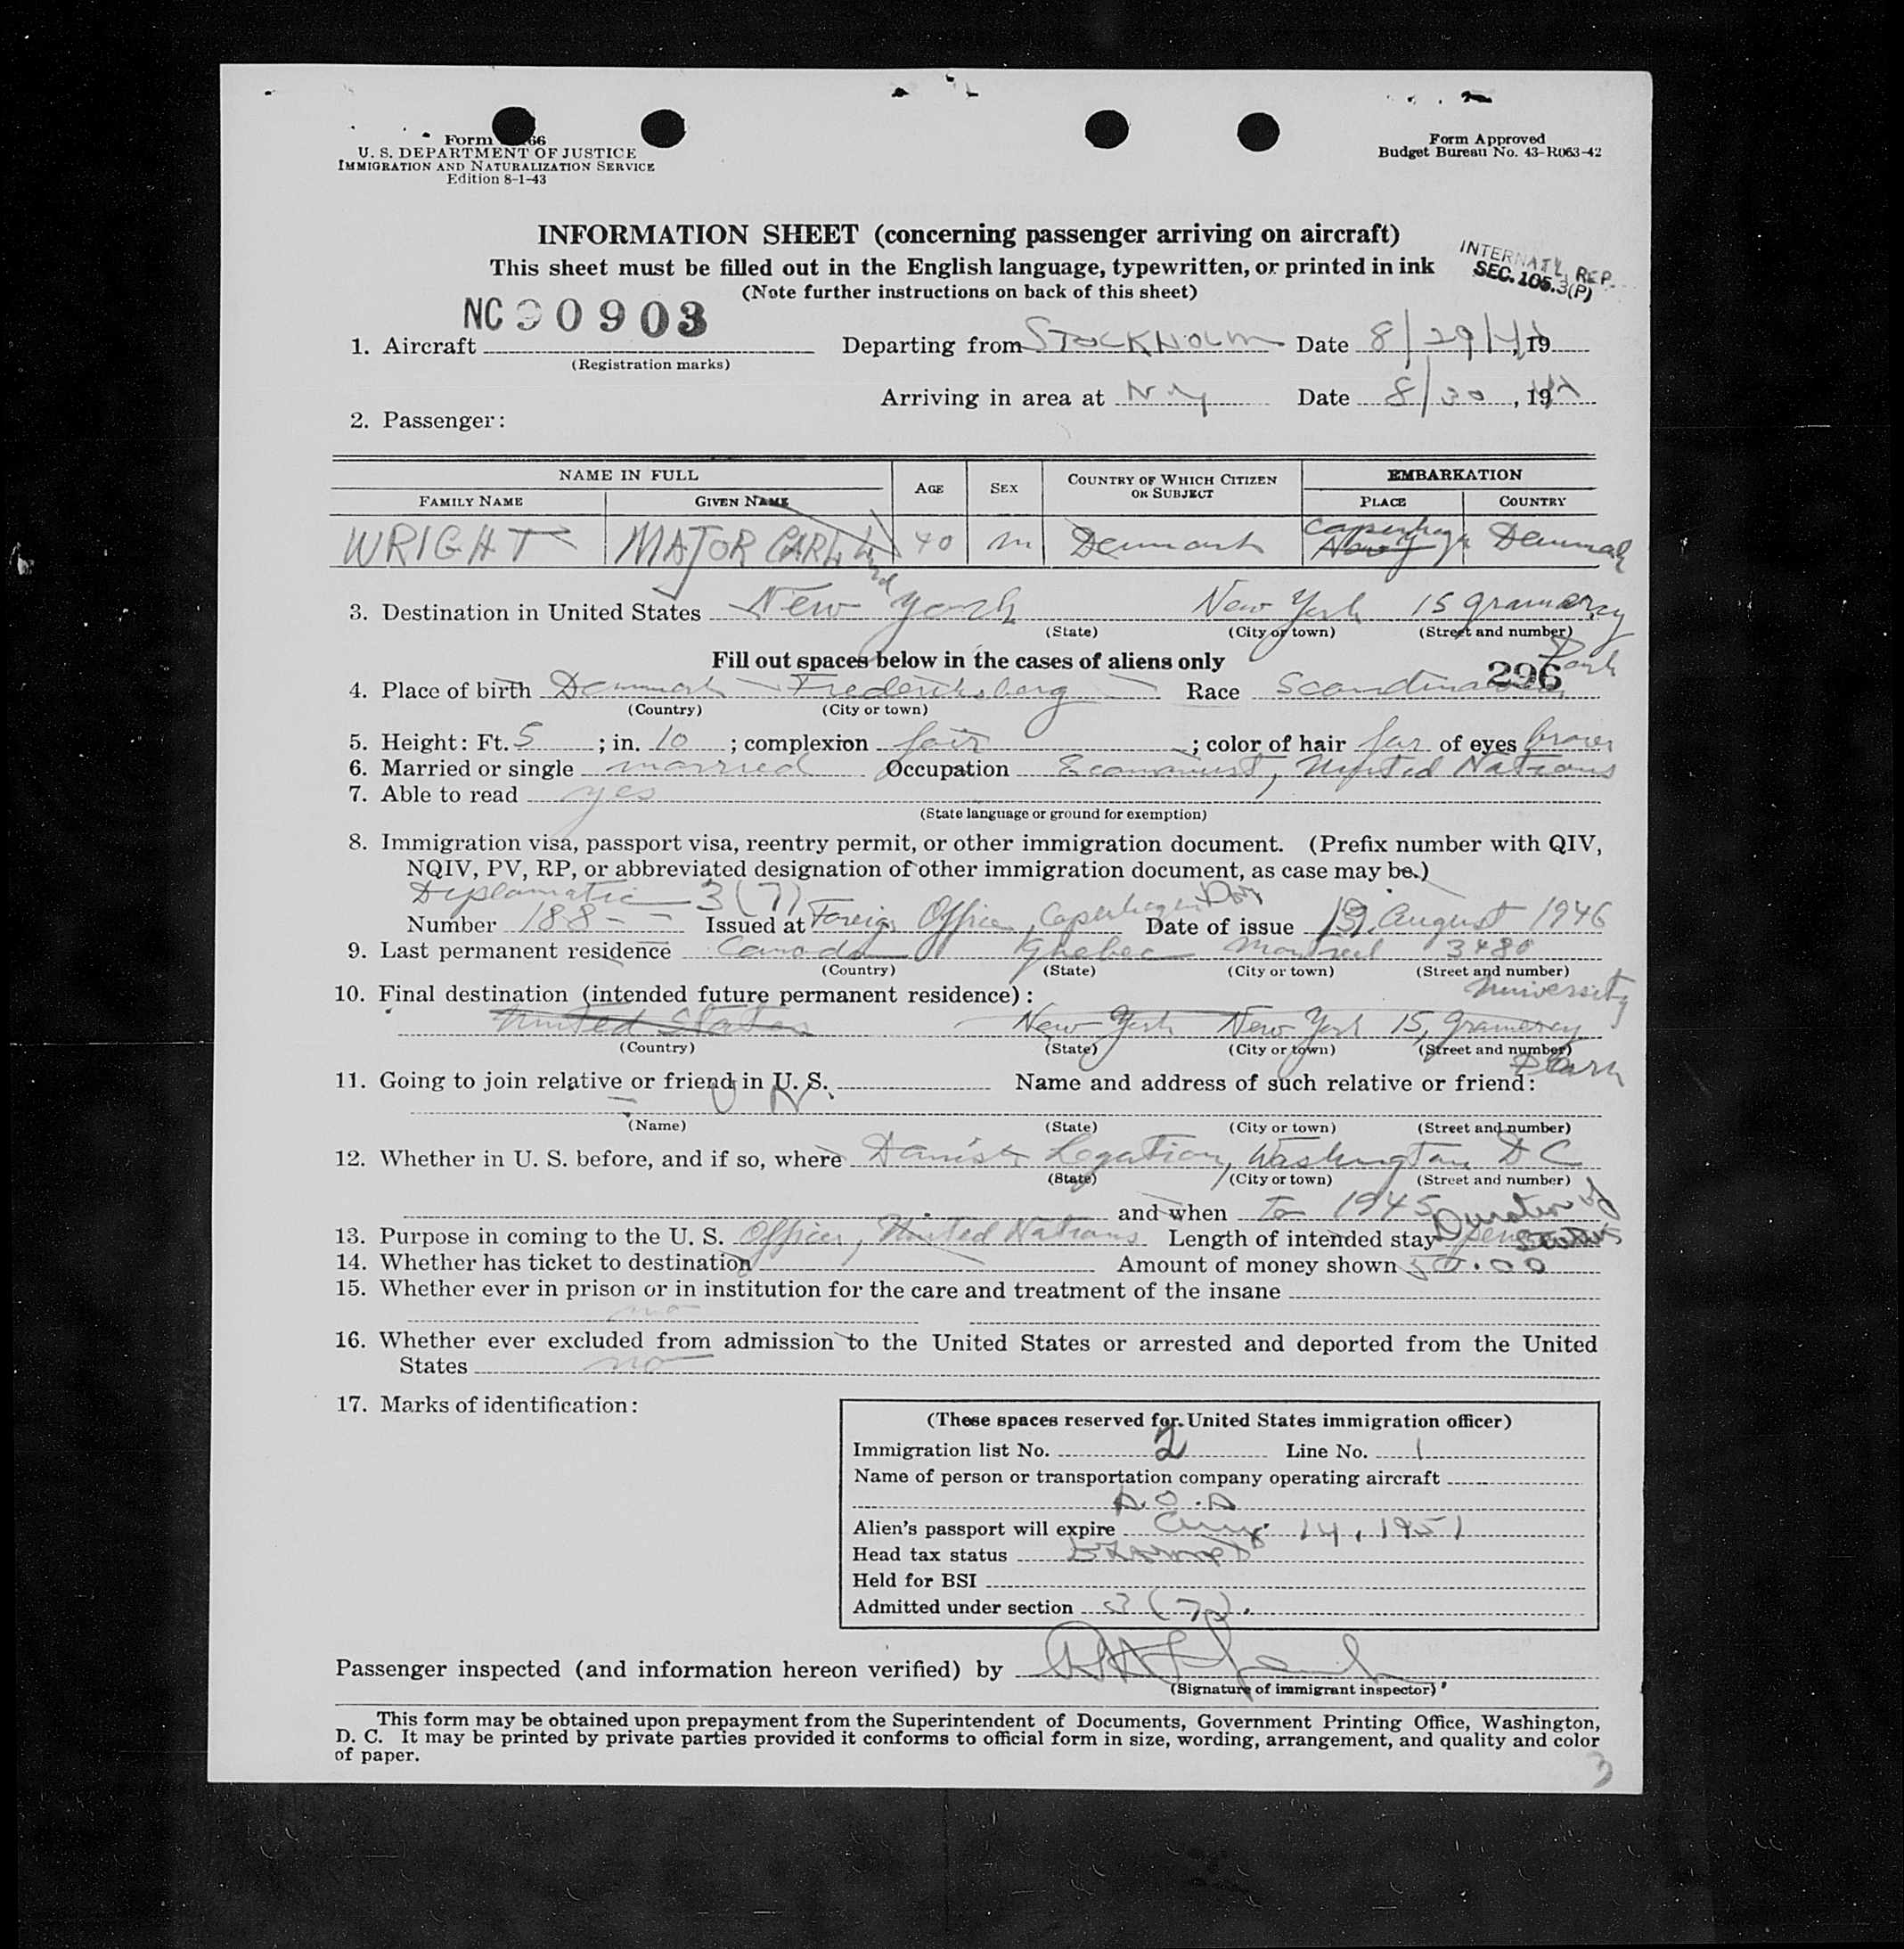 Form 66
U. S. DEPARTMENT OF JUSTICE
IMMIGRATION AND NATURALIZATION SERVICE
Edition 8-1-43
Form Approved
Budget Bureau No. 43-R063-42
INFORMATION SHEET (concerning passenger arriving on aircraft)
This sheet must be filled out in the English language, typewritten, or printed in ink
(Note further instructions on back of this sheet)
INTERNAT'L REP.
SEC. 105.3(P)
NC90903
1. Aircraft
(Registration marks)
Departing from STOCKHOLM Date 8/29/ , 19
Arriving in area at NY Date 8/30 , 19
2. Passenger:
NAME IN FULL AGE SEX COUNTRY OF WHICH CITIZEN OR SUBJECT EMBARKATION
FAMILY NAME GIVEN NAME PLACE COUNTRY
WRIGHT MAJOR CARL 40 m Denmark Denmark
3. Destination in United States New York New York 15 Gramercy Park
(State) (City or town) (Street and number)
Fill out spaces below in the cases of aliens only
296
4. Place of birth Denmark Frederiksberg Race Scandinavian
(Country) (City or town)
5. Height: Ft. 5 ; in. 10 ; complexion fair ; color of hair fair of eyes brown
6. Married or single married Occupation Economist, United Nations
7. Able to read yes
(State language or ground for exemption)
8. Immigration visa, passport visa, reentry permit, or other immigration document. (Prefix number with QIV,
NQIV, PV, RP, or abbreviated designation of other immigration document, as case may be.)
Diplomatic 3(7)
Number 188 Issued at Foreign Office, Copenhagen Date of issue August 1946
9. Last permanent residence Canada Quebec Montreal 3480 University
(Country) (State) (City or town) (Street and number)
10. Final destination (intended future permanent residence):
United States New York New York 15, Gramercy Park
(Country) (State) (City or town) (Street and number)
11. Going to join relative or friend in U. S. Name and address of such relative or friend:
(Name) (State) (City or town) (Street and number)
12. Whether in U. S. before, and if so, where Danish Legation, Washington D C
(State) (City or town) (Street and number)
and when to 1945
13. Purpose in coming to the U. S. Officer, United Nations Length of intended stay Duration of
14. Whether has ticket to destination Amount of money shown 50.00
15. Whether ever in prison or in institution for the care and treatment of the insane
no
16. Whether ever excluded from admission to the United States or arrested and deported from the United
States no
17. Marks of identification:
(These spaces reserved for United States immigration officer)
Immigration list No. 2 Line No. 1
Name of person or transportation company operating aircraft
A.O.A
Alien's passport will expire Aug. 14, 1951
Head tax status Exempt
Held for BSI
Admitted under section 3(7).
Passenger inspected (and information hereon verified) by
(Signature of immigrant inspector)
This form may be obtained upon prepayment from the Superintendent of Documents, Government Printing Office, Washington,
D. C. It may be printed by private parties provided it conforms to official form in size, wording, arrangement, and quality and color
of paper.
3